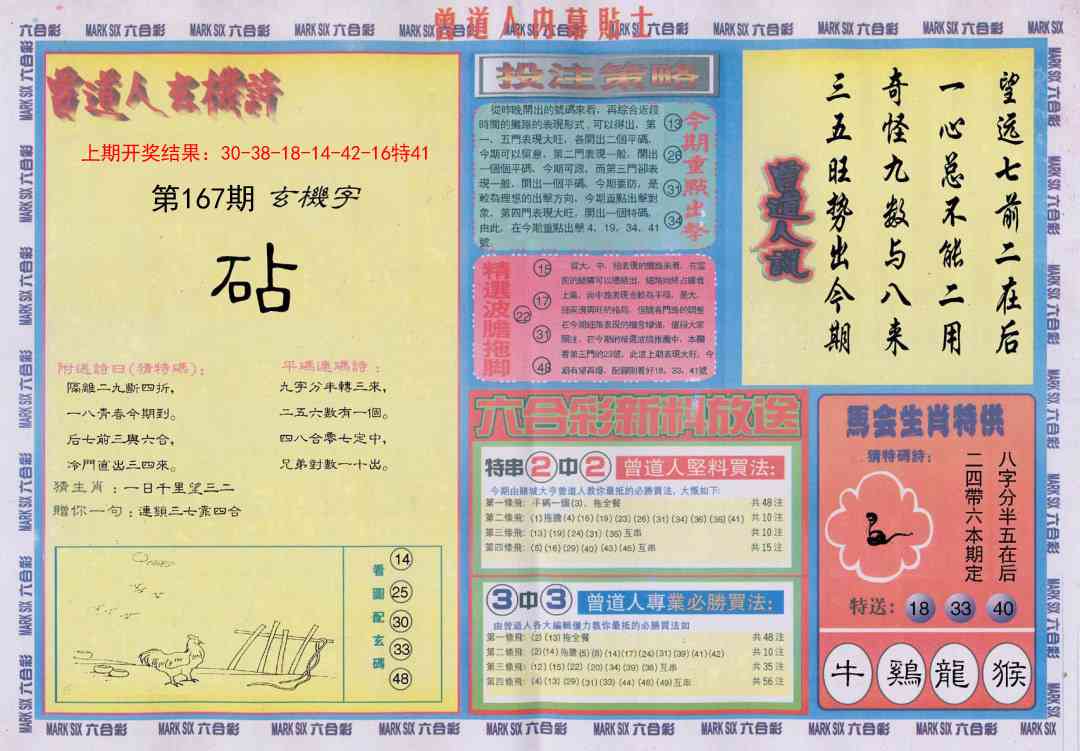 曾道人内幕貼士
六合彩 MARK SIX 六合彩 MARK SIX 六合彩 MARK SIX 六合彩 MARK SIX
曾道人玄機詩
上期开奖结果：30-38-18-14-42-16特41
第167期 玄機字
砧
附送詩曰(猜特碼)：
隔離二九斷四折，
一八青春今期到。
后七前三與六合，
冷門直出三四來。
平碼連碼詩：
九字分半轉三來，
二五六數有一個。
四八合零七定中，
兄弟對數一十出。
猜生肖：一日千里望三二
贈你一句：連頭三七靠四合
看圖配玄碼
14
25
30
33
48
投注策略
從昨晚開出的號碼來看，再綜合近段
時間的攤路的表現形式，可以得出，第
一、五門表現大旺，各開出二個平碼，
今期可以留意，第二門表現一般，開出
一個個平碼，今期可跟，而第三門卻表
現一般，開出一個平碼，今期要防，是
較為理想的出擊方向，今期重點出擊對
象，第四門表現大旺，開出一個特碼，
由此，在今期重點出擊4、19、34、41
號.
今期重點出擊
13
26
31
34
精選波膽拖脚
18
17
22
31
48
看第三門的23號，此波上期表現大旺，今
期有望再爆，配腳則看好18、33、41號
六合彩新料放送
特串2中2 曾道人堅料買法：
今期由賭城大亨曾道人教你最抵的必勝買法，大概如下：
第一條飛：平碼一個(3)、拖全餐 共48注
第二條飛：(1)拖膽(4)(16)(19)(23)(26)(31)(34)(36)(38)(41) 共10注
第三條飛：(13)(19)(24)(31)(35)互串 共10注
第四條飛：(5)(16)(29)(40)(43)(45)互串 共15注
3中3 曾道人專業必勝買法：
由曾道人各大編輯優力教你最抵的必勝買法如
第一條飛：(2)(13)拖全餐 共48注
第二條飛：(2)(14)拖膽(5)(8)(14)(17)(24)(31)(39)(41)(42) 共10注
第三條飛：(12)(15)(22)(20)(34)(39)(36)互串 共35注
第四條飛：(4)(13)(29)(31)(33)(44)(48)(49)互串 共56注
曾道人説
望远七前二在后
一心总不能二用
奇怪九数与八来
三五旺势出今期
馬会生肖特供
猜特碼詩：
八字分半五在后
二四帶六本期定
特送：18 33 40
牛 鷄 龍 猴
MARK SIX 六合彩 MARK SIX 六合彩 MARK SIX 六合彩 MARK SIX 六合彩